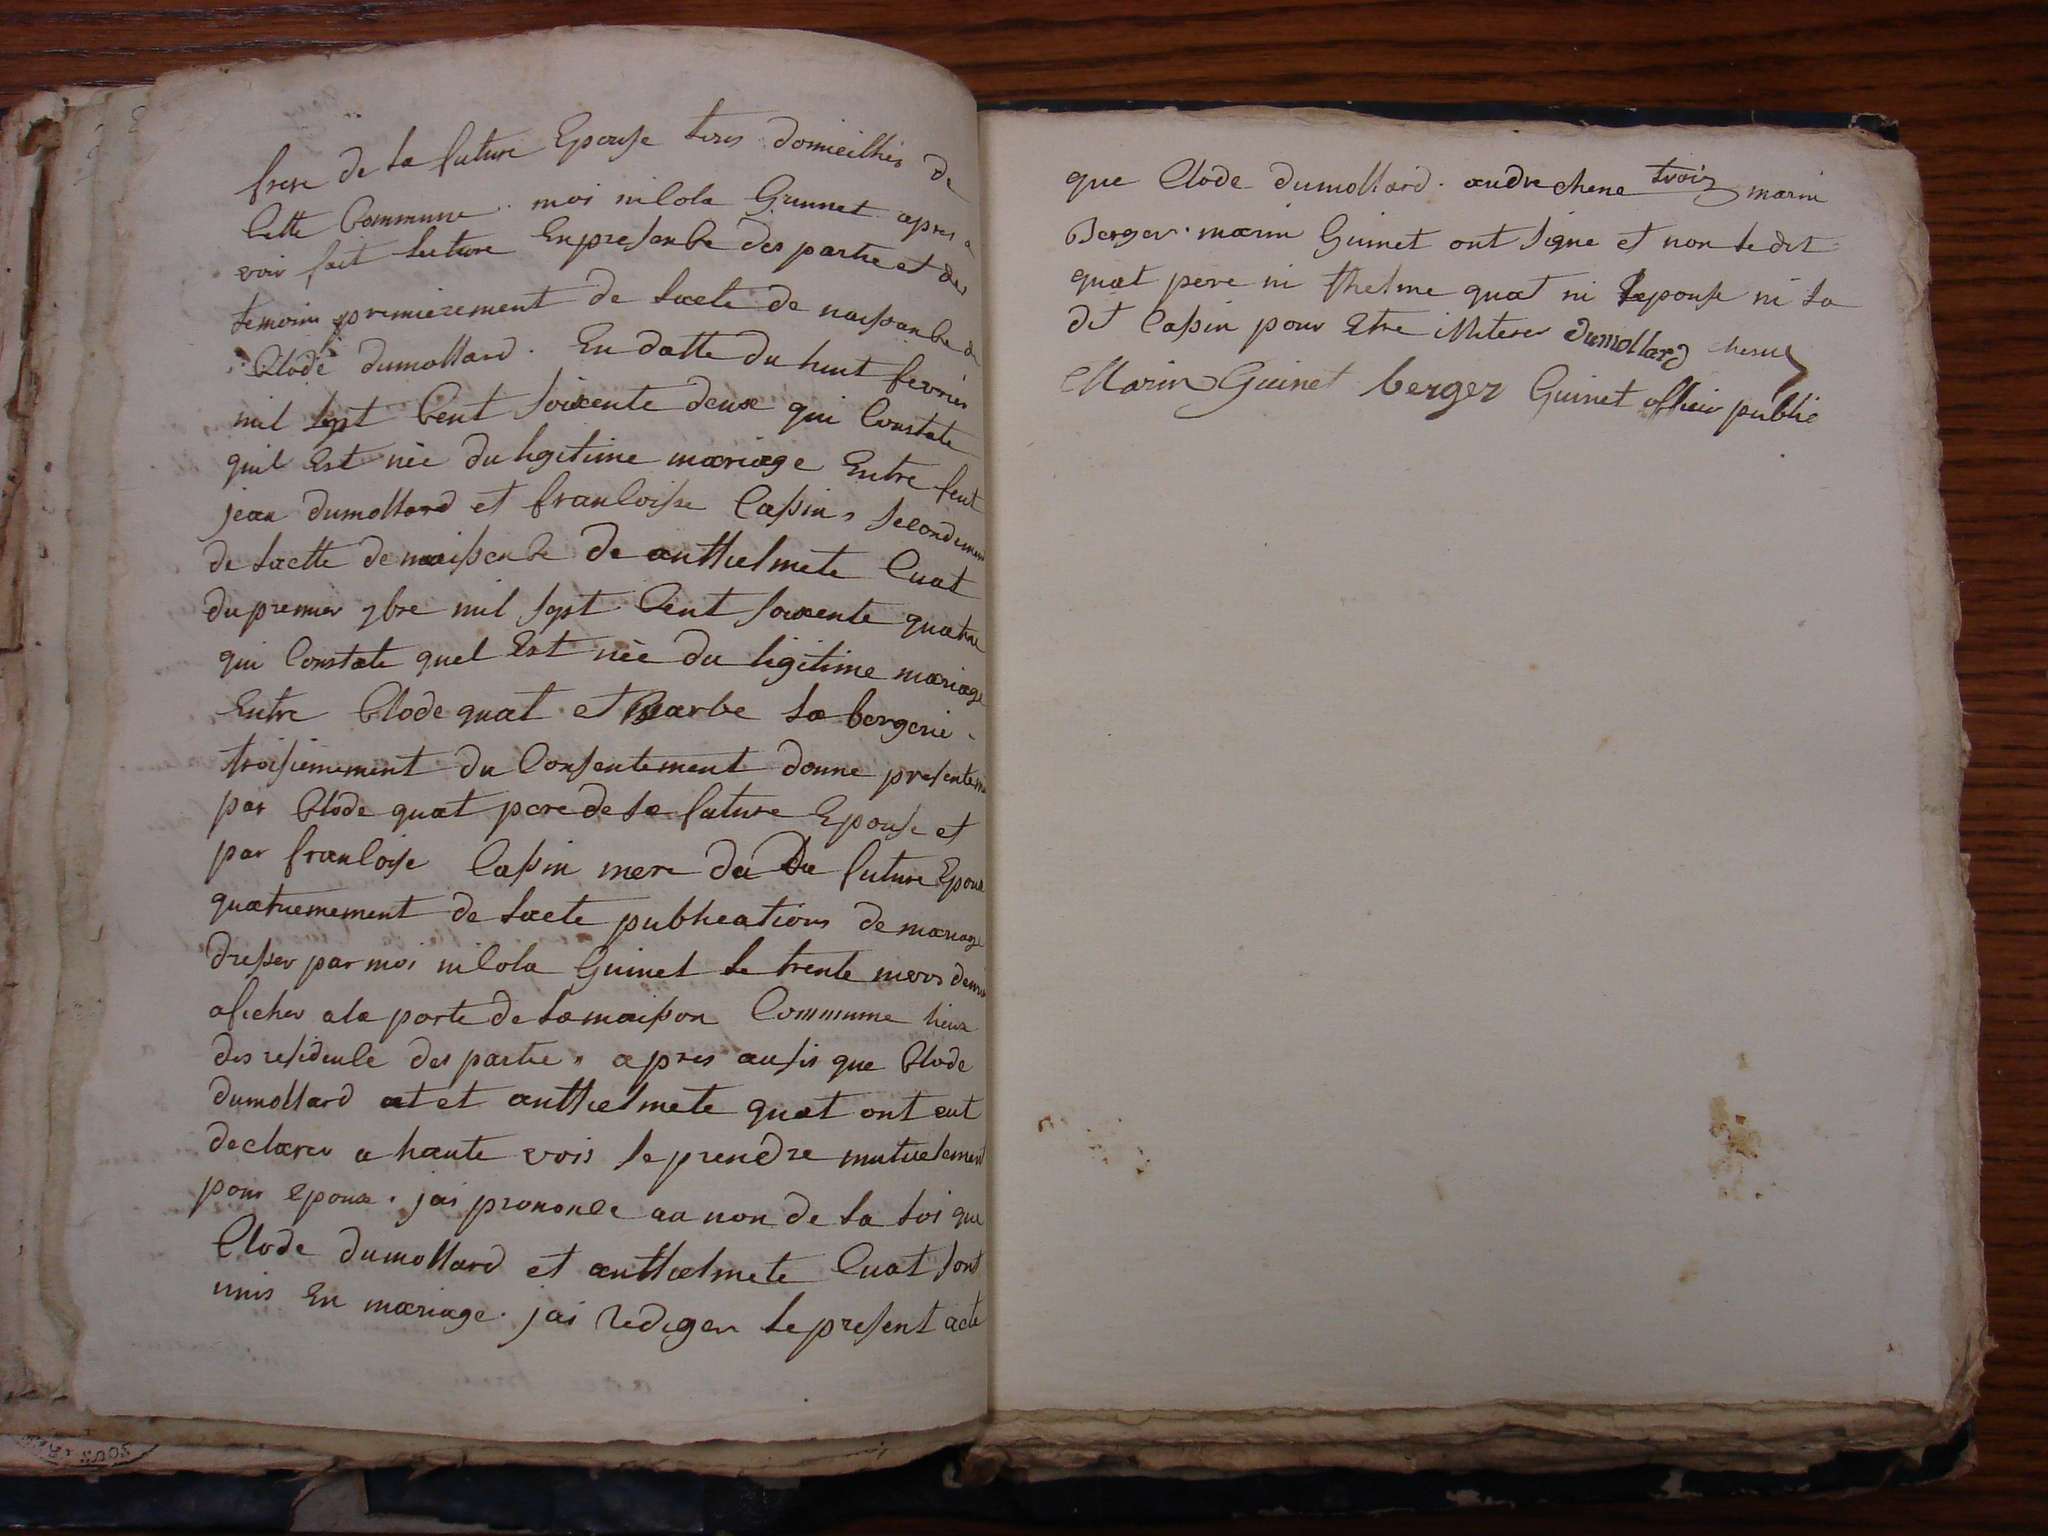 frere de la future Epouse tous domicilhies de
Cette Commune. moi nicola Guinnet apres a
voir fait lecture En presence des partie et des
temoins premierement de lacte de naissance de
Clode dumollard. En datte du huit fevrier
mil sept Cent soixente deux qui Constate
quil Est nèe du ligitime mariage Entre feut
jean dumollard et francoisse Cassin, secondement
de lactte de naissence de anthelmete Cuat
du premier 7bre mil sept Cent soixente quatre
qui Constate quel Est nèe du ligitime mariage
Entre Clode quat et Barbe la bergerie.
troisiemement du Consentement donne presentem
par Clode quat pere de la future Epouse et
par francoise Cassin mere du Du future Epoux
quatriemement de lacte publications de mariage
dresser par moi nicola Guinet le trente mars dernier
aficher a la porte de la maison Commume lieux
des residence des partie, apres aussis que Clode
dumollard at et anthelmete quat ont eut
declarer a haute vois se prendre mutuelement
pour epoux. jai prononce au non de la loi que
Clode dumollard et anthelmete Cuat sont
unis En mariage. jai rediger le present acte
que Clode dumollard. andre chene troiz marin
Berger. marin Guinet ont signe et non le dit
quat pere ni thelme quat ni Lepouse ni la
dit Cassin pour Etre illiterer dumollard chene
Marin Guinet berger Guinet officier public